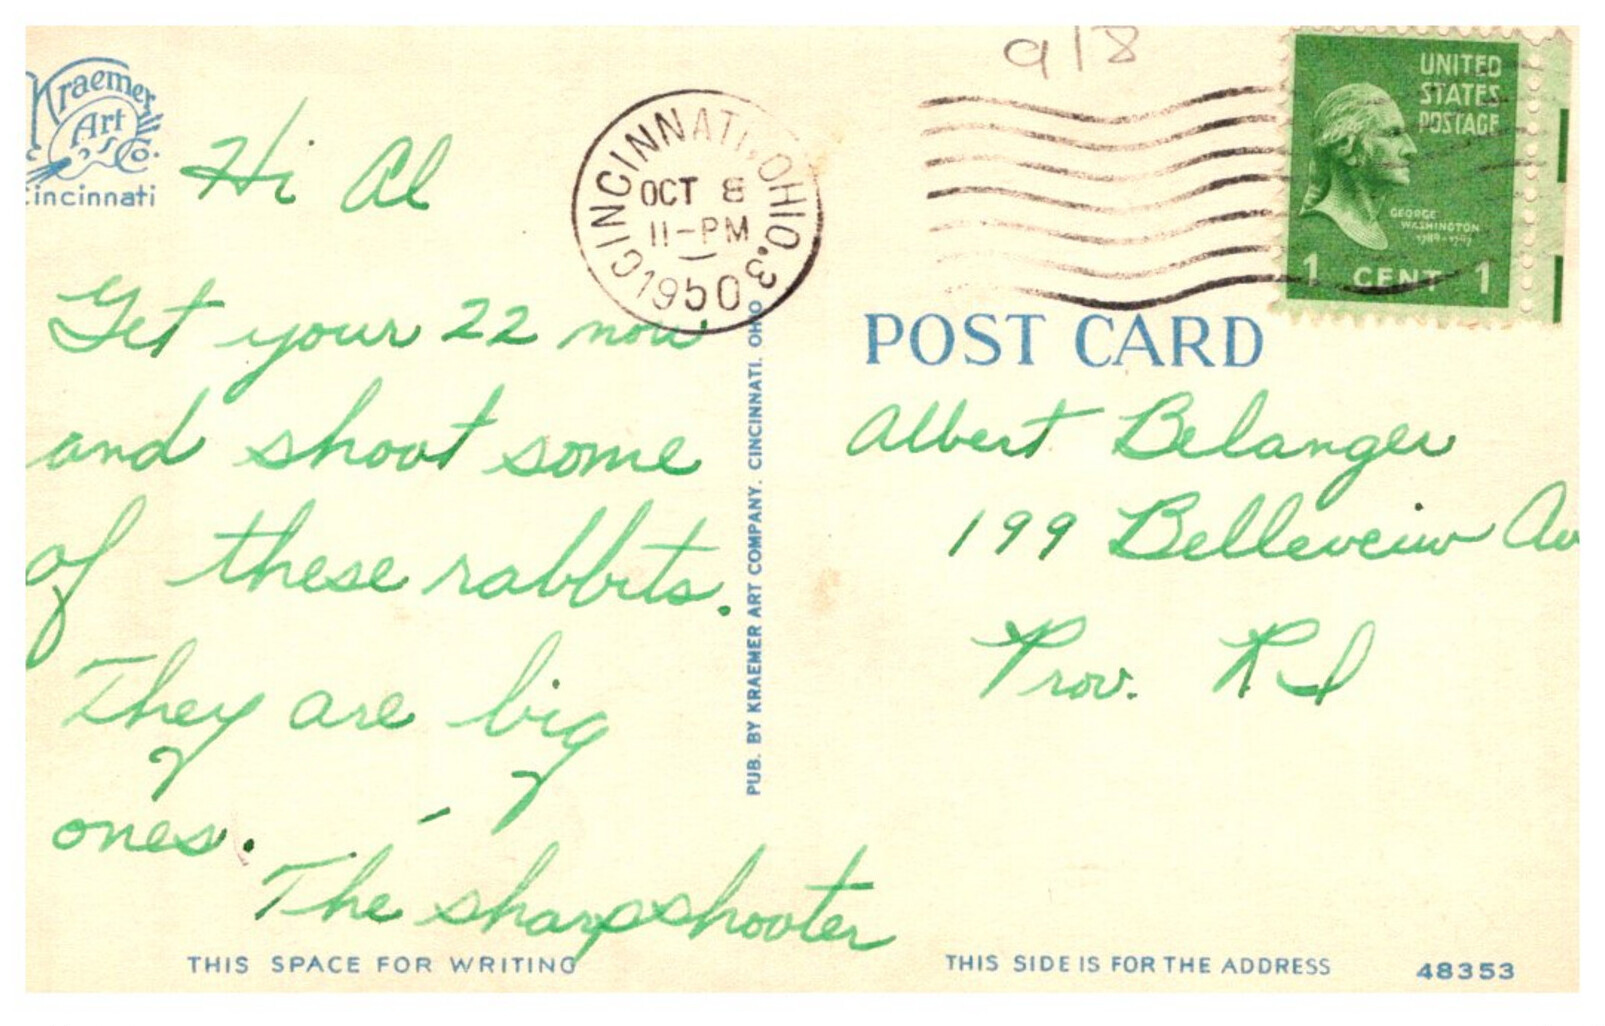 918
UNITED
STATES
POSTAGE
GEORGE
WASHINGTON
1789-1797
1 CENT 1
Kraemer
Art
Co.
Cincinnati
CINCINNATI, OHIO. 3
OCT 8
11-PM
1950
Hi Al
Get your 22 now
and shoot some
of these rabbits.
They are big
ones. -
The sharpshooter
THIS SPACE FOR WRITING
PUB. BY KRAEMER ART COMPANY. CINCINNATI. OHIO
POST CARD
Albert Belanger
199 Belleveiw Av
Prov. RI
THIS SIDE IS FOR THE ADDRESS
48353